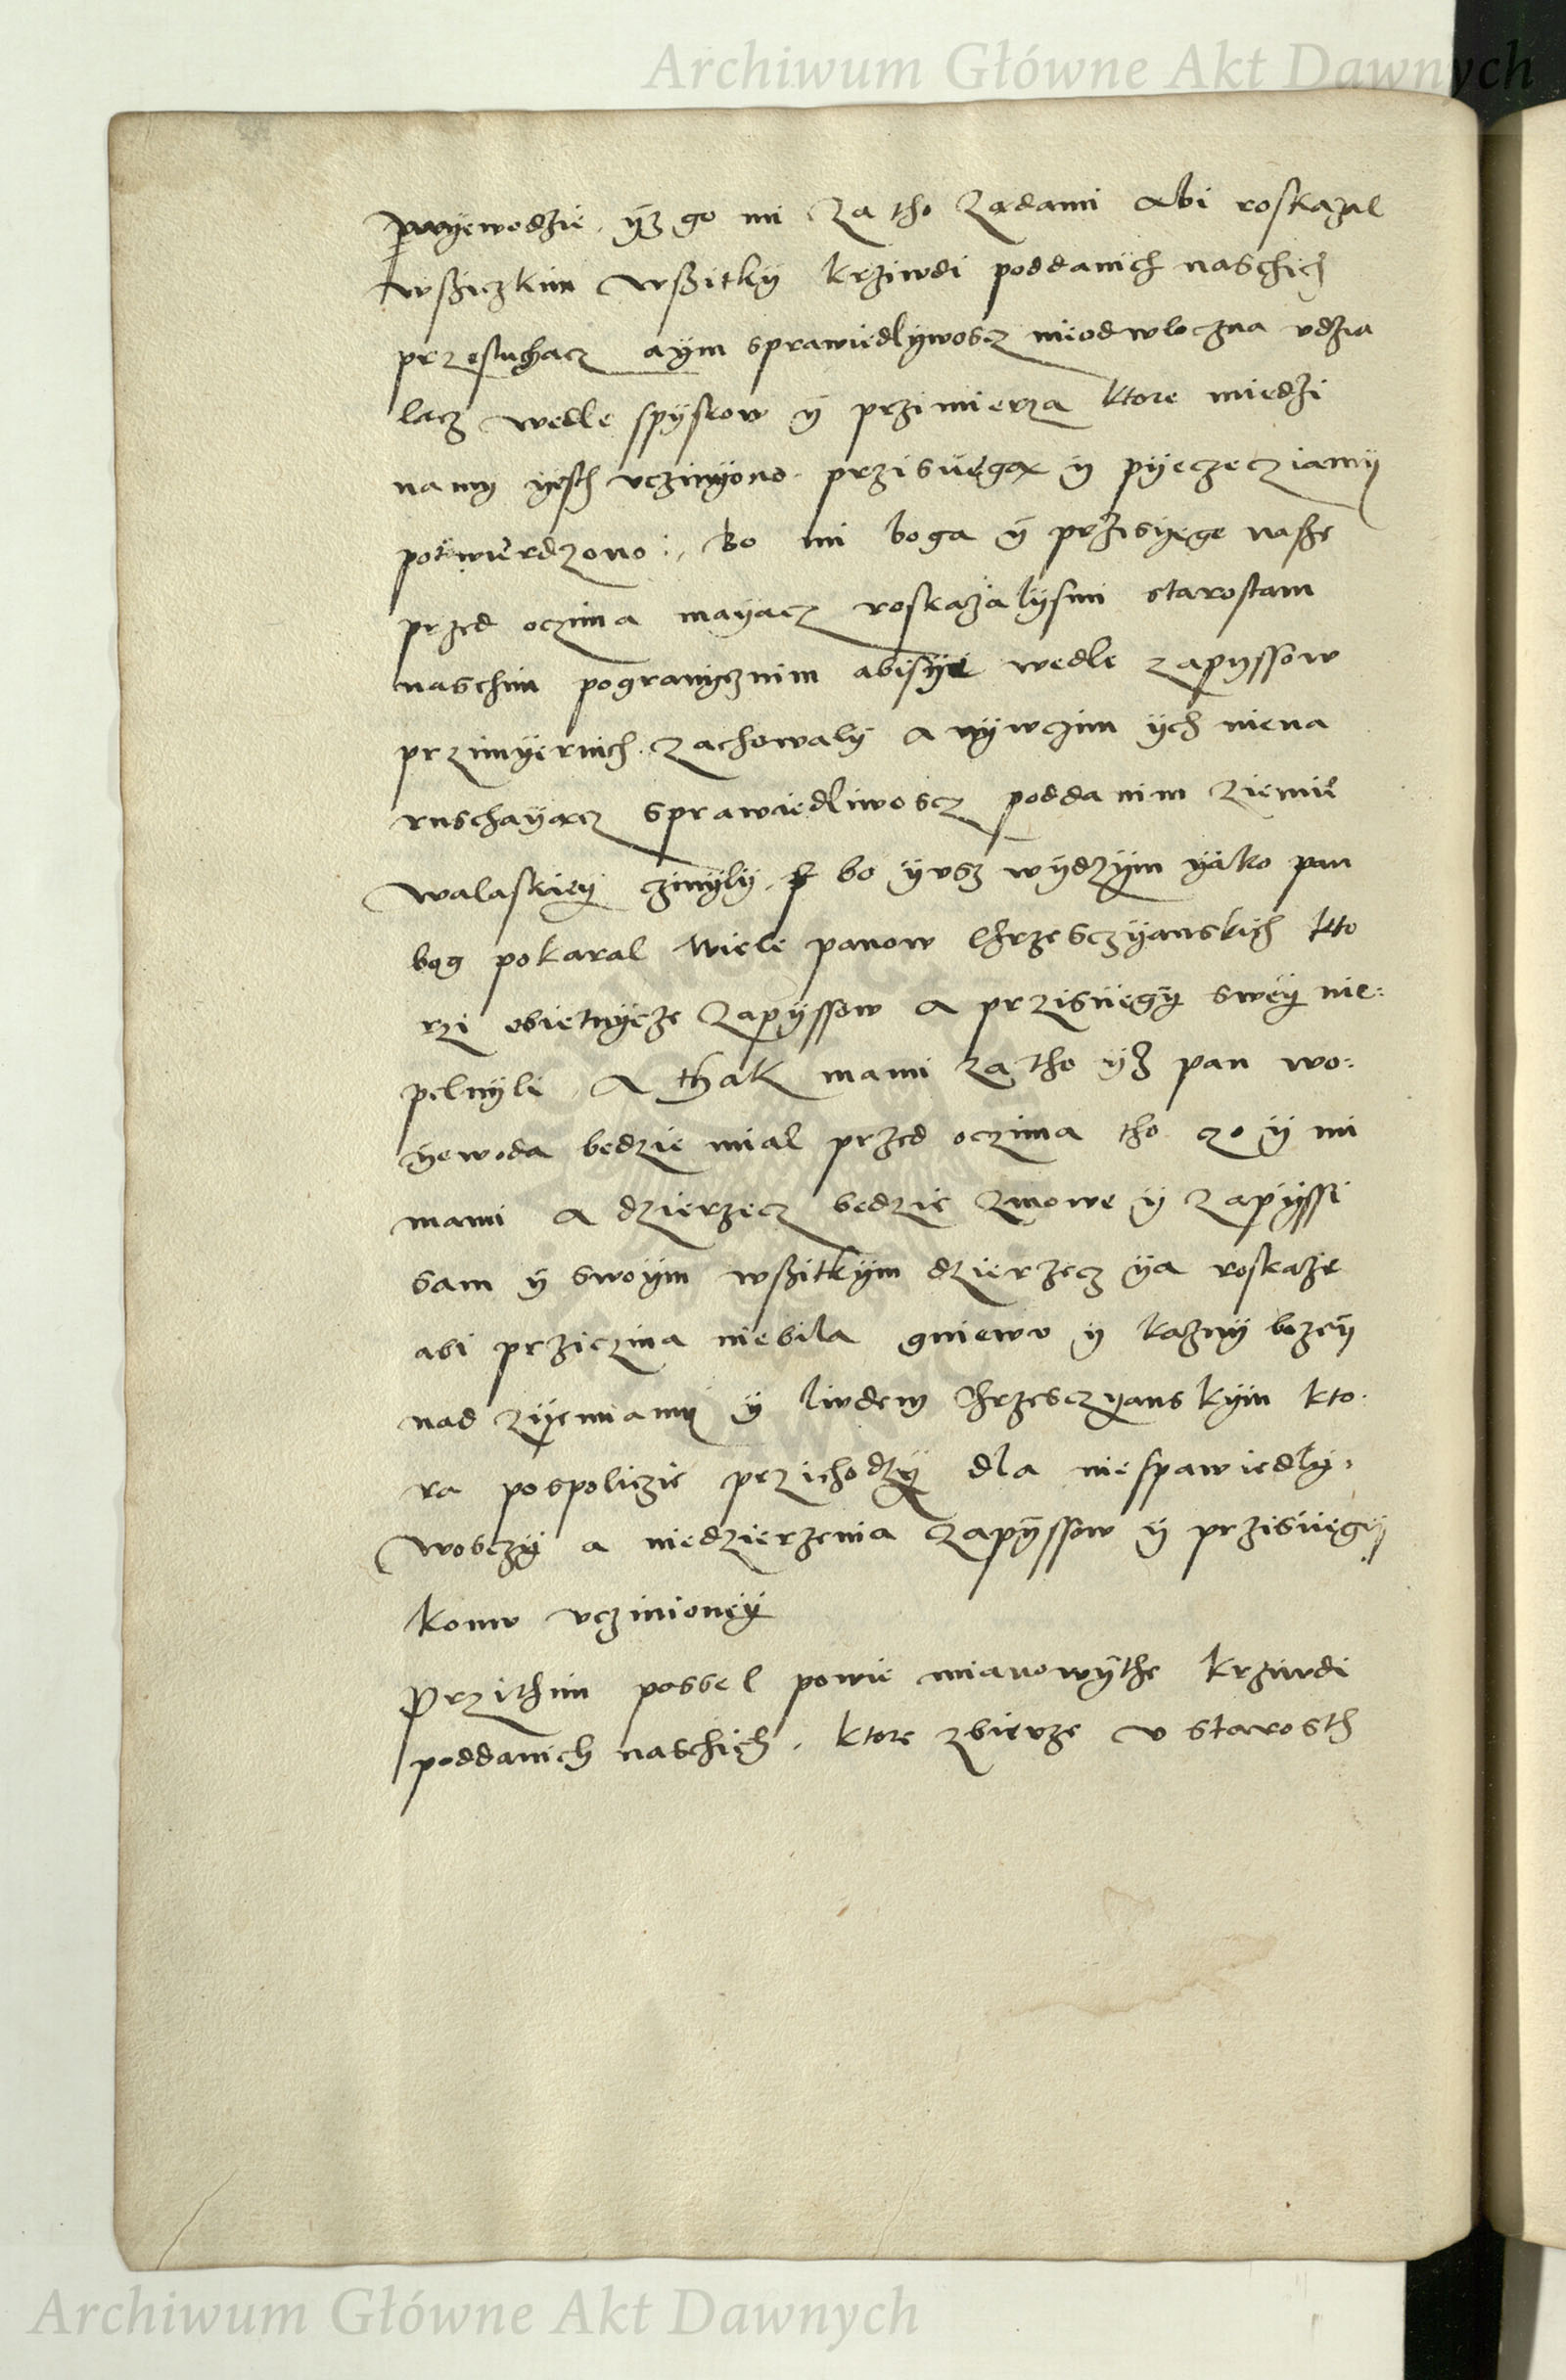 Archiwum Główne Akt Dawnych
woyewodzie, yz go mi za tho ządami abi roskazal
wssiczkim wssitky krziwdi poddanich naschich
przesluchacz aym sprawiedlywoscz nieodwloczna vdzia
lacz wedle spyskow y przimierza ktore miedzi
namy yesth vczinyono. przisiega y pyeczecziamy
potwierdzono:, Bo mi boga y przisyege nasze
przed oczima mayacz roskazalysmi starostam
naschim pogranycznim abi sye wedle zapyssow
przimyernich zachowaly a nywczim ych niena
ruschayacz sprawiedliwoscz poddanim ziemie
walaskiey czinyly, bo yvsz wydzym yako pan
bog pokaral wiele panow chrzesczyanskich kto
rzi obietnycze zapyssow a przisiegy swey nie:
pelnyli, A thak mami za tho yz pan wo:
yewoda bedzie mial przed oczima tho czo y mi
mami a dzierzecz bedzie zmowe y zapyssi
sam y swoym wssitkym dzierzecz ya roskaze
abi przicina niebila gniewv y kazny bozey
nad zyemiamy y liudem chrzesczyanskym kto.
ra pospoliczie przichodzy dla niespawiedly,
wosczy a niedzierzenia zapyssow y przisiegy
komv vczinioney
Przithim possel powie mianowythe krziwdi
poddanich naschich, ktore zbierze v starosth
Archiwum Główne Akt Dawnych